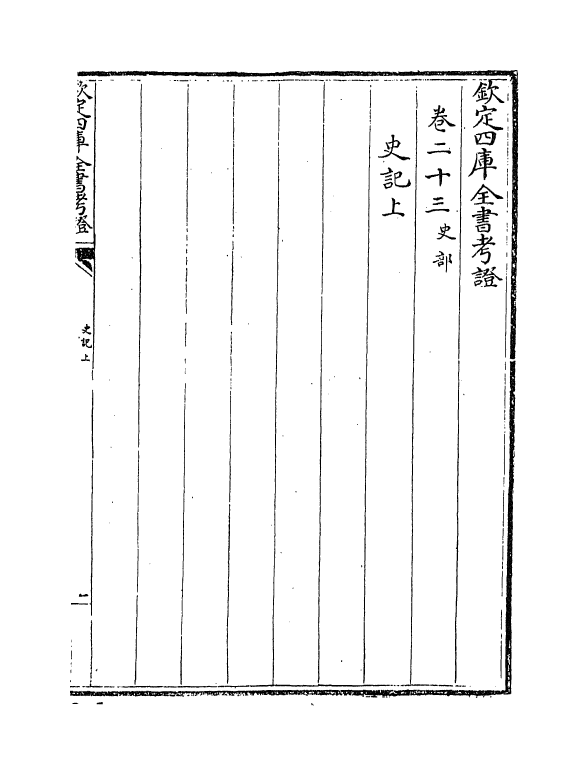 欽定四庫全書考證
卷二十三史部
史記上
欽定四庫全書考證
史記上
二